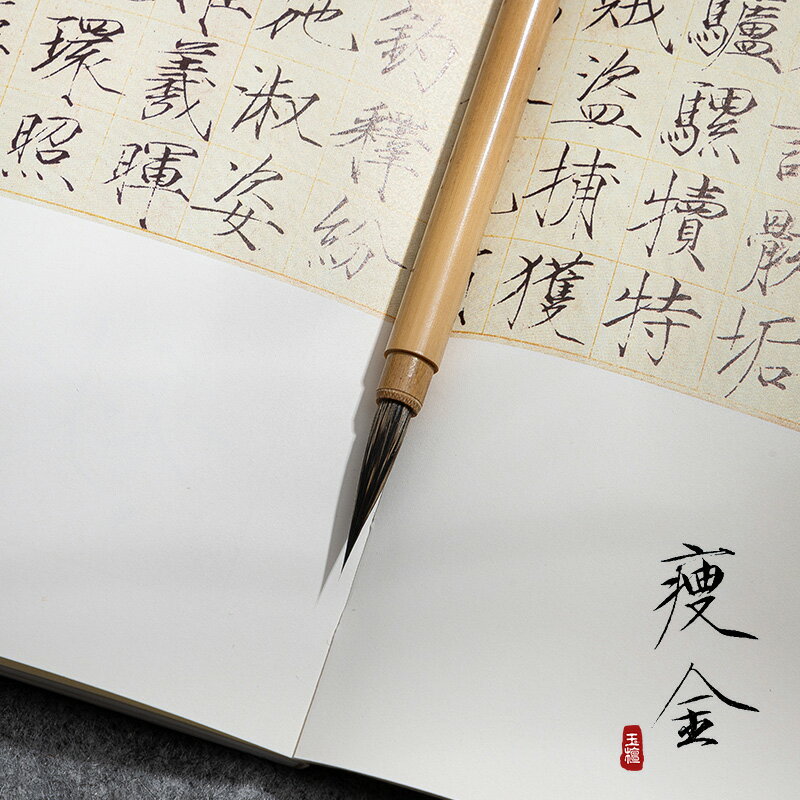 骸垢
驢騾犢特
賊盜捕獲
釣釋紛
淑姿
羲暉
環照
瘦金
玉檀